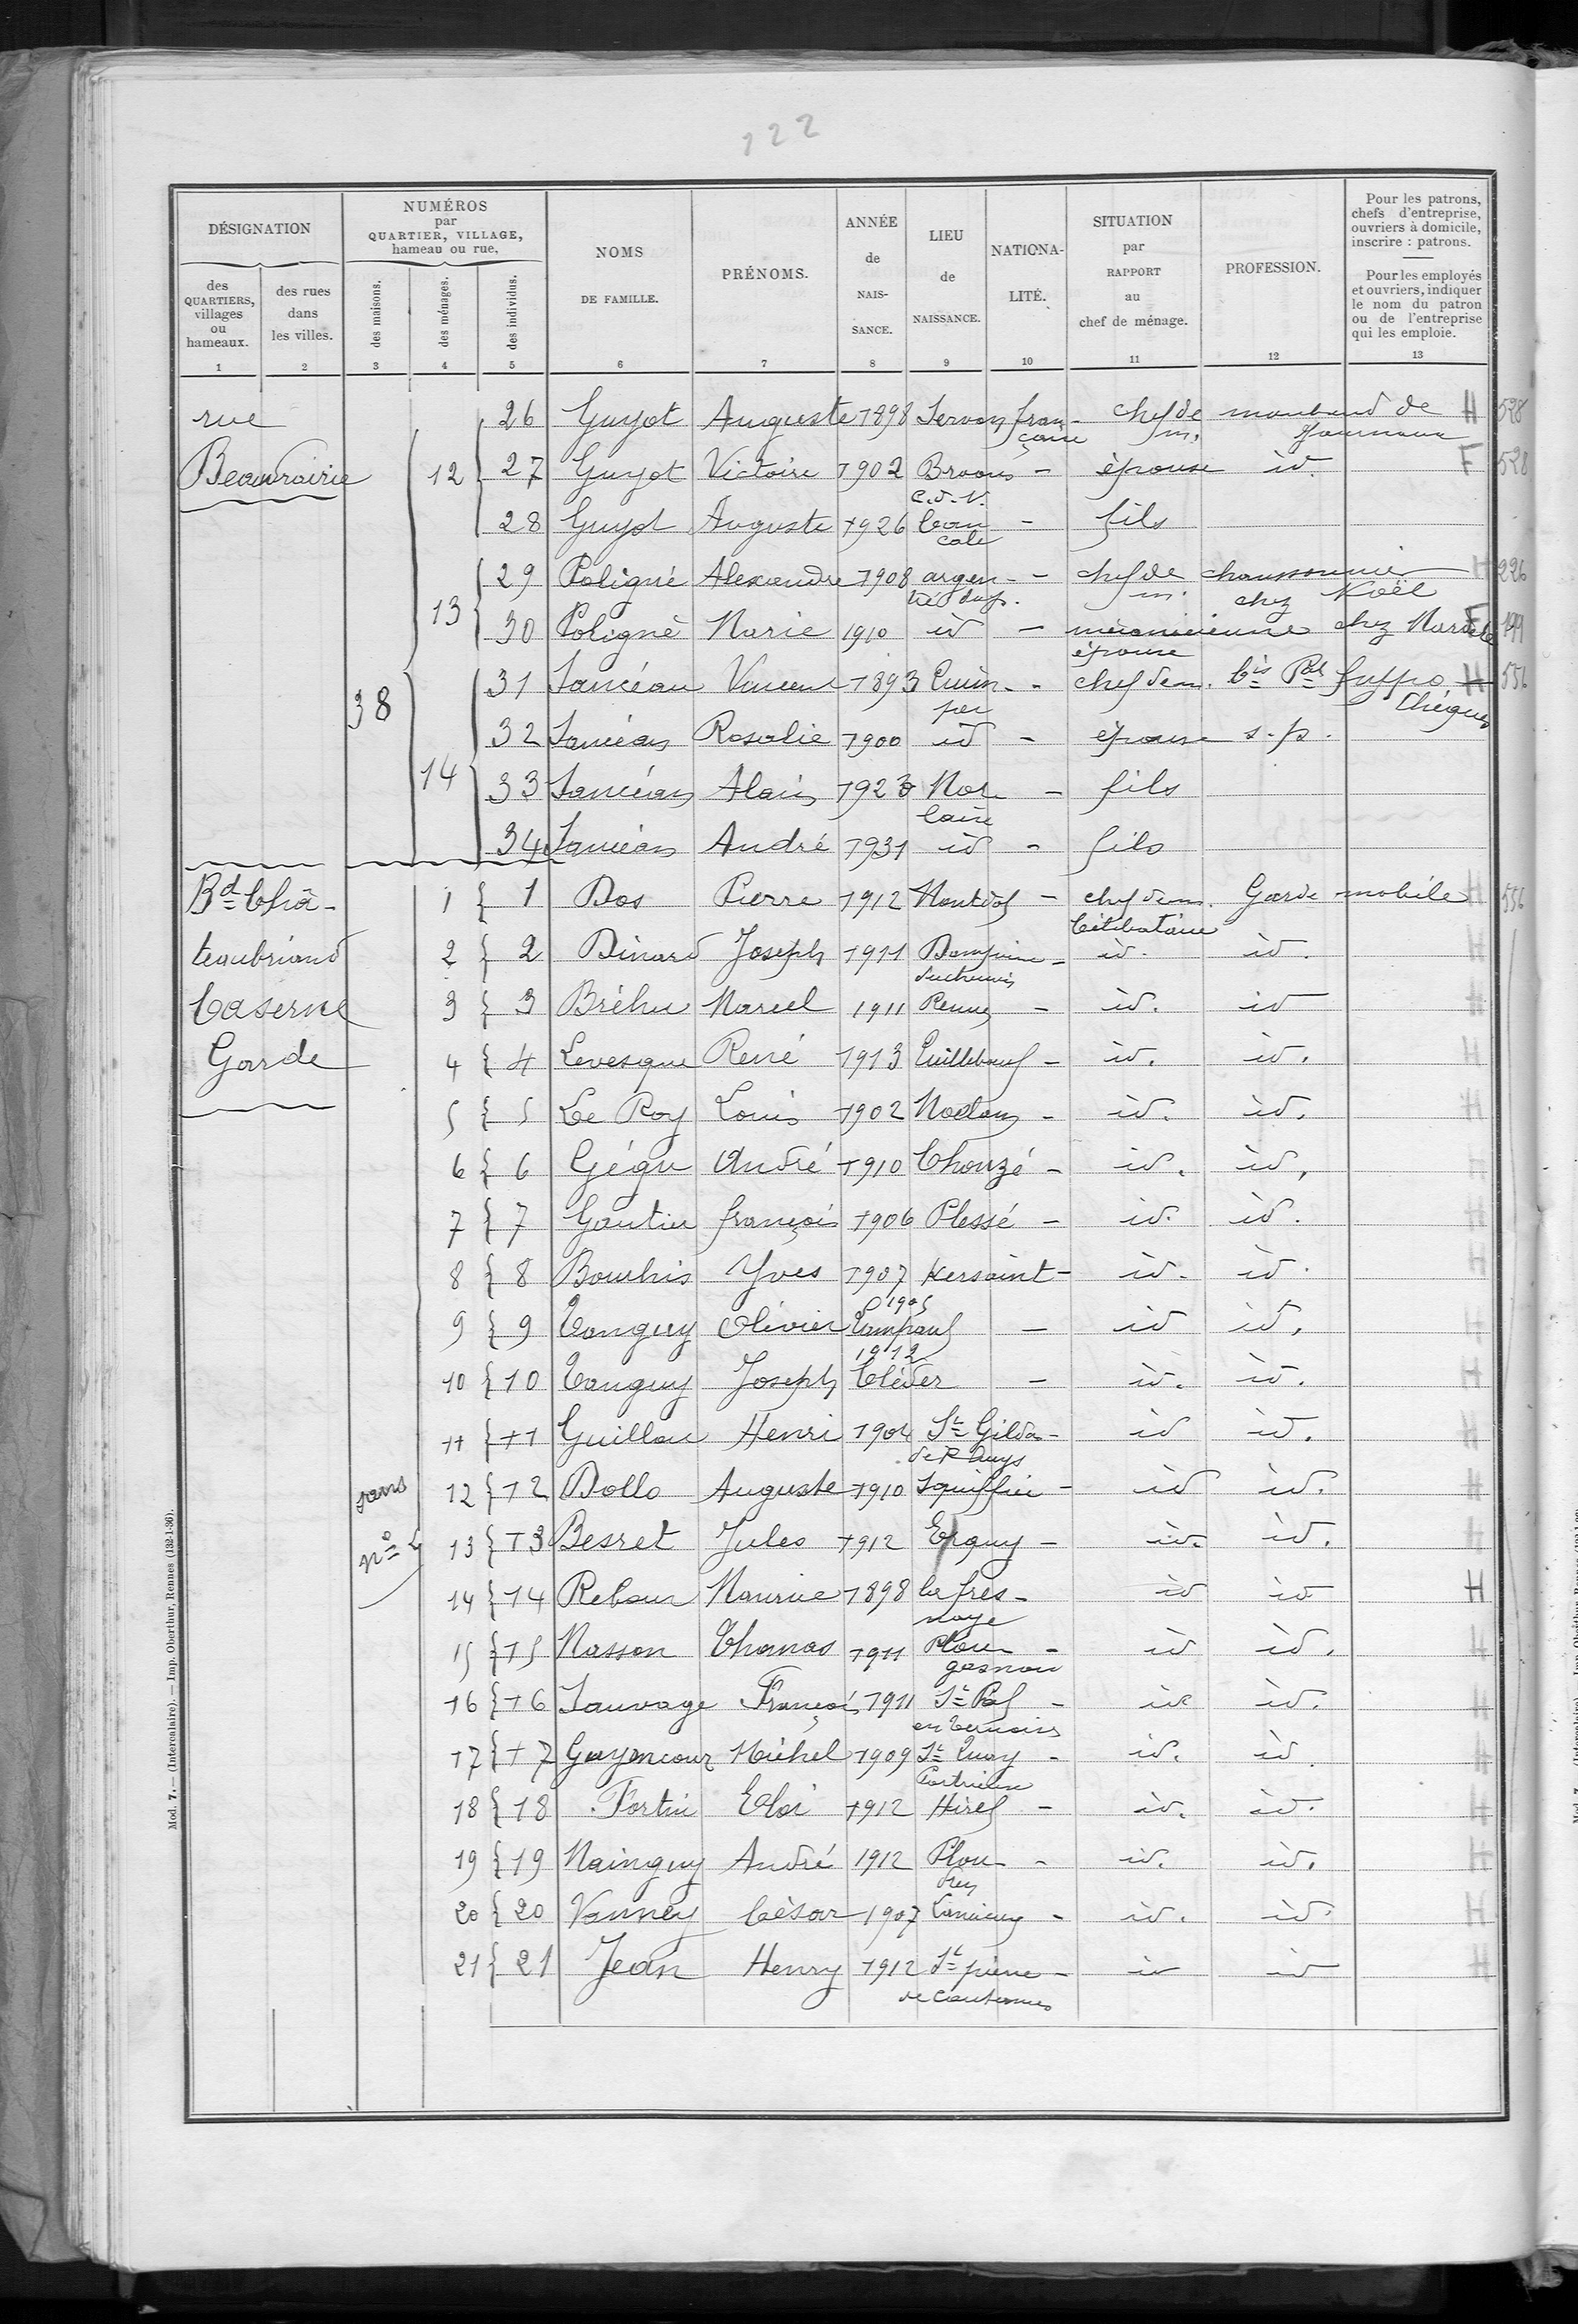 122
DÉSIGNATION
des QUARTIERS, villages ou hameaux.
des rues dans les villes.
NUMÉROS par QUARTIER, VILLAGE, hameau ou rue.
des maisons.
des ménages.
des individus.
NOMS DE FAMILLE.
PRÉNOMS.
ANNÉE de NAIS- SANCE.
LIEU de NAISSANCE.
NATIONA- LITÉ.
SITUATION par RAPPORT au chef de ménage.
PROFESSION.
Pour les patrons, chefs d'entreprise, ouvriers à domicile, inscrire : patrons.
Pour les employés et ouvriers, indiquer le nom du patron ou de l'entreprise qui les emploie.
1 2 3 4 5 6 7 8 9 10 11 12 13
rue 26 Guyot Auguste 1898 Servon fran- çaise chef de m. marchand de Journaux H 528
Beauvairie 12 27 Guyot Victoire 1902 Broons - épouse id. F 528
C.d.N.
28 Guyot Auguste 1926 Can cale - fils
29 Poligné Alexandre 1908 argen- tré dup. - chef de m. chaussonnier chez Noël H 226
13 30 Poligné Marie 1910 id - mécanicienne chez F 199
épouse
38 31 Sancéau Vincent 1893 Quim- per - chef de m. H 556
Chèques
32 Sancéau Rosalie 1900 id - épouse s.p.
14 33 Sancéau Alain 1923 Mor laix - fils
34 Sancéau André 1931 id - fils
Bd Châ- 1 1 Dos Pierre 1912 Montdol - chef de m. Garde mobile H 556
Célibataire
teaubriand 2 2 Dinard Joseph 1911 - id. id. H
Caserne 3 3 Bréhu Marcel 1911 Rennes - id. id H
Garde 4 4 Levesque René 1913 Quillebeuf - id. id. H
5 5 Le Roy Louis 1902 Moelan - id. id. H
6 6 Gégu André 1910 Chouzé - id. id. H
7 7 Gautier françois 1906 Plessé - id. id. H
8 8 Bourhis Yves 1907 Kersaint - id. id. H
9 9 Tanguy Olivier 1905 Lampaul - id id. H
10 10 Tanguy Joseph 1912 Cléder - id. id. H
11 11 Guillou Henri 1904 St Gildas - id id. H
de Rhuys
sans 12 12 Dollo Auguste 1910 Squiffiec - id id. H
nº 13 13 Besret Jules 1912 Erquy - id. id. H
14 14 Rebour Maurice 1898 la fres- naye id id H
15 15 Masson Thomas 1911 Plou- gasnou - id id. H
16 16 Sauvage François 1911 St Pol - id id. H
en Ternois
17 17 Guyoncour Michel 1909 St Quay - id. id H
Portrieux
18 18 Fortin Eloi 1912 Hirel - id. id. H
19 19 Mainguy André 1912 Plou - id. id. H
20 20 Vanney César 1907 - id. id. H
21 21 Jean Henry 1912 St pierre - id id H
Mod. 7. — (Intercalaire). — Imp. Oberthur, Rennes (132-1-36).